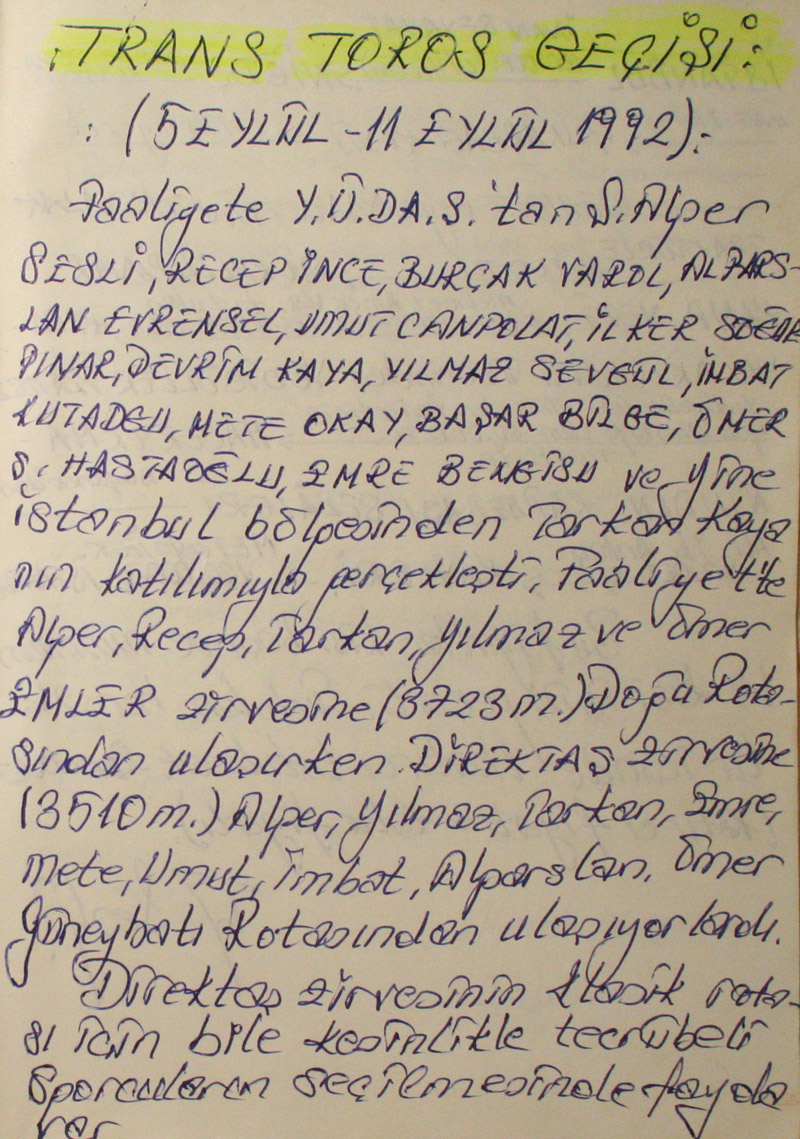 : TRANS TOROS GEÇİŞİ :
: (5 EYLÜL - 11 EYLÜL 1992) :
Faaliyete Y.Ü.DA.S.'tan S. Alper
SESLİ, RECEP İNCE, BURÇAK VAROL, ALPARS-
LAN EVRENSEL, UMUT CANPOLAT, İLKER
PINAR, DEVRİM KAYA, YILMAZ SEVGÜL, İMBAT
MUTADGU, METE OKAY, BAŞAR BİLGE, ÖMER
S. HASTAOĞLU, EMRE BENGİSU ve yine
İstanbul bölgesinden Tarkan Kaya
nın katılımıyla gerçekleşti. Faaliyet'te
Alper, Recep, Tarkan, Yılmaz ve Ömer
EMLER zirvesine (3723 m.) Doğu Rota-
sından ulaşırken DİREKTAŞ zirvesine
(3510 m.) Alper, Yılmaz, Tarkan, Emre,
Mete, Umut, İmbat, Alparslan, Ömer
Güneybatı Rotasından ulaşıyorlardı.
Direktaş zirvesinin klasik rota-
sı için bile kesinlikle tecrübeli
Sporcuların seçilmesinde fayda
var